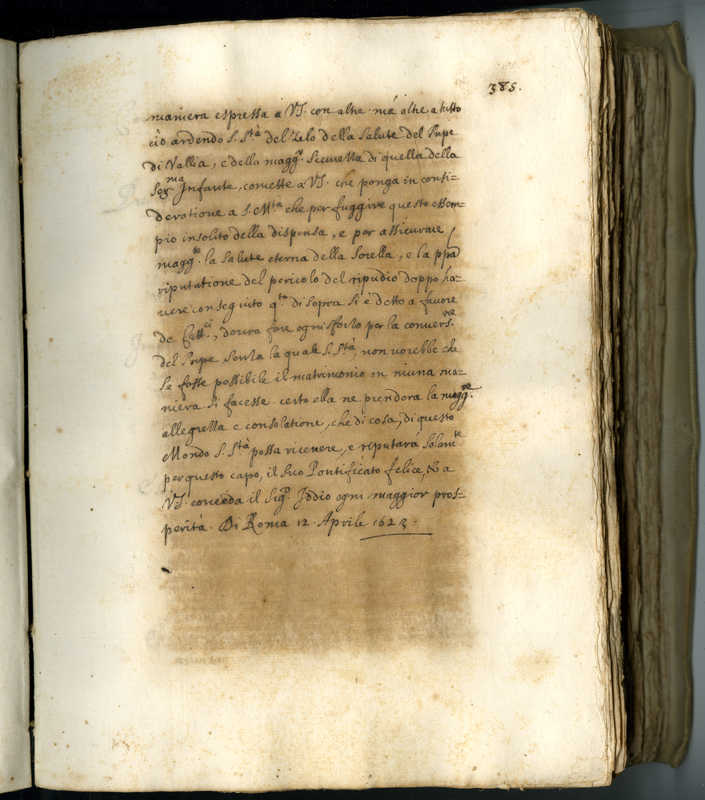 385.
maniera espressa à VS. con altre. mà oltre a tutto
ciò ardendo S. Stà del Zelo della Salute del Pnpe
di Vallia, e della maggr. Sicurezza di quella della
Serma Infante, comette à VS. che ponga in consi=
deratione a S. Mta che per fuggire questo essem=
pio insolito della dispensa, e per assicurare
maggte. la Salute eterna della Sorella, e la ppa
riputatione del pericolo del ripudio doppo ha=
vere conseguito qto di sopra si è detto a favore
de Catt.ci, dovria fare ogni sforzo per la conversne.
del Pnpe senza la quale S. Stà non vorebbe che
se fosse possibile il matrimonio in niuna ma=
niera si facesse. certo ella ne prenderà la maggre.
allegrezza e consolatione, che di cosa, di questo
Mondo S. Stà possa ricevere, e riputarà Solamte
per questo capo, il suo Pontificato felice, & a
VS. conceda il Sigr. Iddio ogni maggior pros=
perità. Di Roma 12. Aprile 1623.